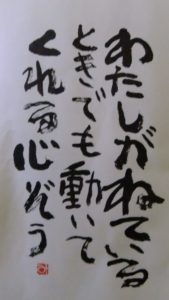 わたしがねている
ときでも動いて
くれる心ぞう